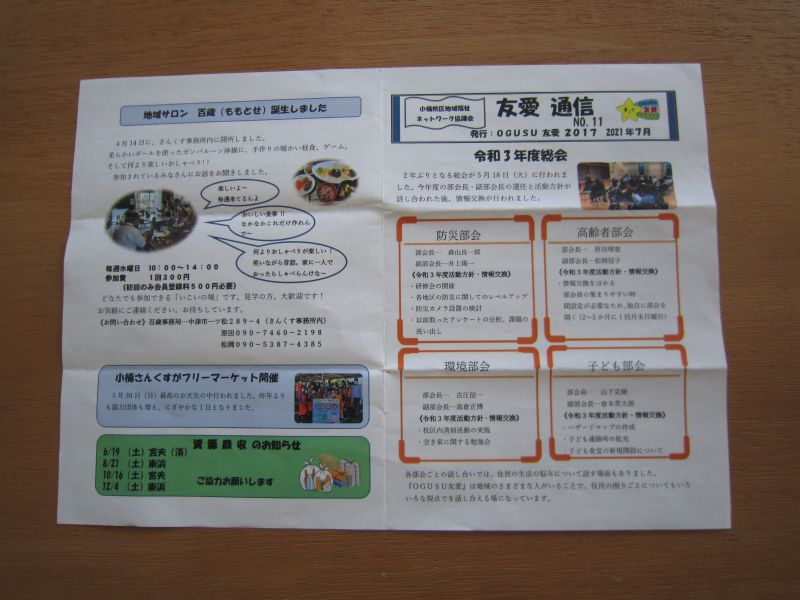 地域サロン 百歳(ももとせ)誕生しました
4月14日に、さんくす事務所内に開所しました。
柔らかいボールを使ったガンバルーン体操に、手作りの暖かい昼食、ゲーム。
そして何より楽しいおしゃべり!!
参加されているみなさんにお話をお聞きしました。
楽しいよ～
毎週来てるんよ
おいしい食事!!
なかなかこれだけ作れんで～
何よりおしゃべりが楽しい!
笑いながら昔話。家に一人でおったらしゃべらんけな～
毎週水曜日 10:00～14:00
参加費 1回300円
(初回のみ会員登録料500円必要)
どなたでも参加できる「いこいの場」です。見学の方、大歓迎です!
お気軽にご連絡ください。お待ちしています。
《お問い合わせ》百歳事務局…中津市一ツ松289-4(さんくす事務所内)
原田090-7460-2198
松岡090-5387-4385
小楠さんくすがフリーマーケット開催
5月30日(日)最高のお天気の中行われました。昨年よりも協力団体も増え、にぎやかな1日となりました。
資源回収のお知らせ
6/19 (土) 宮夫(済)
8/21 (土) 東浜
10/16 (土) 宮夫
12/4 (土) 東浜
ご協力お願いします
小楠校区地域福祉
ネットワーク協議会
友愛 通信
NO.11
発行:OGUSU 友愛 2017 2021年7月
友愛
令和3年度総会
2年ぶりとなる総会が5月18日(火)に行われました。今年度の部会長・副部会長の選任と活動方針が話し合われた後、情報交換が行われました。
防災部会
部会長… 森山良一郎
副部会長…井上陽一
《令和3年度活動方針・情報交換》
・研修会の開催
・各地区の防災に関してのレベルアップ
・防災カメラ設置の検討
・以前取ったアンケートの分析、課題の洗い出し
高齢者部会
部会長…
副部会長…松岡信子
《令和3年度活動方針・情報交換》
・情報交換をはかる
部会員の集まりやすい時間設定が必要なため、独自に部会を開く(2～3か月に1回月末日曜日)
環境部会
部会長… 古江信一
副部会長…高倉正博
《令和3年度活動方針・情報交換》
・校区内清掃活動の実施
・空き家に関する勉強会
子ども部会
部会長… 山下克樹
副部会長…倉本英太郎
《令和3年度活動方針・情報交換》
・ハザードマップの作成
・子ども連絡所の拡充
・子ども食堂の新規開設について
各部会ごとの話し合いでは、住民の生活の悩みについて話す場面もありました。
『OGUSU友愛』は地域のさまざまな人がいることで、住民の困りごとについてもいろいろな視点でを話し合える場になっています。